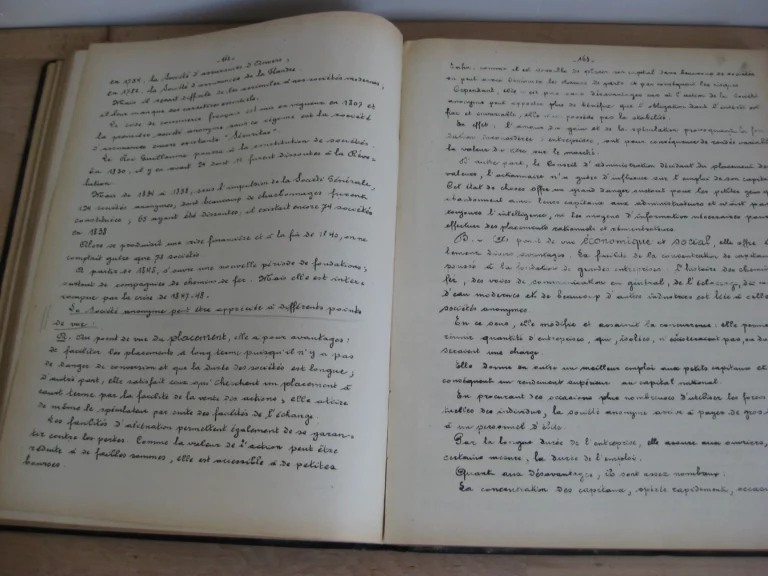 161.
en 1754, la Société d'assurances d'Anvers,
en 1782, la Société d'assurances de la Flandre.
Mais il serait difficile de les assimiler à nos sociétés modernes,
et leur manque des caractères essentiels.
Le code de commerce français est mis en vigueur en 1807 et
la première société anonyme sous ce régime est la société
d'assurances encore existante "Sécuritas".
Le Roi Guillaume poussa à la constitution de sociétés.
En 1830, il y en avait 20 dont 11 furent dissoutes à la Révo-
lution.
Mais de 1834 à 1838, sous l'impulsion de la Société Générale,
sociétés anonymes, dont beaucoup de charbonnages furent
constituées ; 65 ayant été dissoutes, il existait encore 74 sociétés
en 1838
Alors se produisit une crise financière et à la fin de 1840, on ne
comptait guère que 70 sociétés.
A partir de 1845, s'ouvre une nouvelle période de fondations,
surtout de compagnies de chemin de fer. Mais elle est inter-
rompue par la crise de 1847-48.
La Société anonyme peut être appréciée à différents points
de vue :
A. Au point de vue du placement, elle a pour avantages :
de faciliter les placements à long terme puisqu'il n'y a pas
de danger de conversion et que la durée des sociétés est longue ;
d'autre part, elle satisfait ceux qui cherchent un placement à
court terme par la facilité de la vente des actions ; elle attire
de même le spéculateur par suite des facilités de l'échange.
Les facilités d'aliénation permettent également de se garan-
tir contre les pertes. Comme la valeur de l'action peut être
réduite à de faibles sommes, elle est accessible à de petites
bourses.
163.
Enfin, comme il est possible de placer son capital dans beaucoup de sociétés
on peut ainsi les chances de perte et par conséquent les risques
Cependant, elle n'est pas sans désavantages car si l'action de la Société
anonyme peut apporter plus de bénéfice que l'obligation dont l'intérêt est
fixe et invariable, elle n'en possède pas la stabilité.
En effet, l'amour du gain et de la spéculation provoquent la fon
dation inconsidérée d'entreprises, ont pour conséquence de rendre variable
la valeur du titre sur le marché.
D'autre part, le Conseil d'administration décidant du placement de
valeurs, l'actionnaire n'a guère d'influence sur l'emploi de son capital
Cet état de choses offre un grand danger surtout pour les petites gens qui
abandonnent ainsi leurs capitaux aux administrateurs et n'ont pas
toujours l'intelligence, ni les moyens d'information nécessaires pour
effectuer des placements rationnels et rémunérateurs.
B. - Au point de vue économique et social, elle offre é
lement divers avantages. La facilité de la concentration de capitaux
a la fondation de grandes entreprises : l'histoire des chemins
fer, des voies de communication en général, de l'éclairage, dis
d'eau modernes et de beaucoup d'autres industries est liée à celle
sociétés anonymes.
En ce sens, elle modifie et accroît la concurrence : elle perme
réunir quantité d'entreprises, qui, isolées, n'existeraient pas, en de
une charge.
Elle donne en outre un meilleur emploi aux petits capitaux et
conséquent un rendement supérieur au capital national.
En procurant des occasions plus nombreuses d'utiliser les forces
intellec des individus, la société anonyme arrive à payer de gros
à un personnel d'élite.
Par la longue durée de l'entreprise, elle assure aux ouvriers,
certaine mesure, la durée de l'emploi.
Quant aux désavantages, ils sont assez nombreux :
La concentration des capitaux, opérée rapidement, occasi